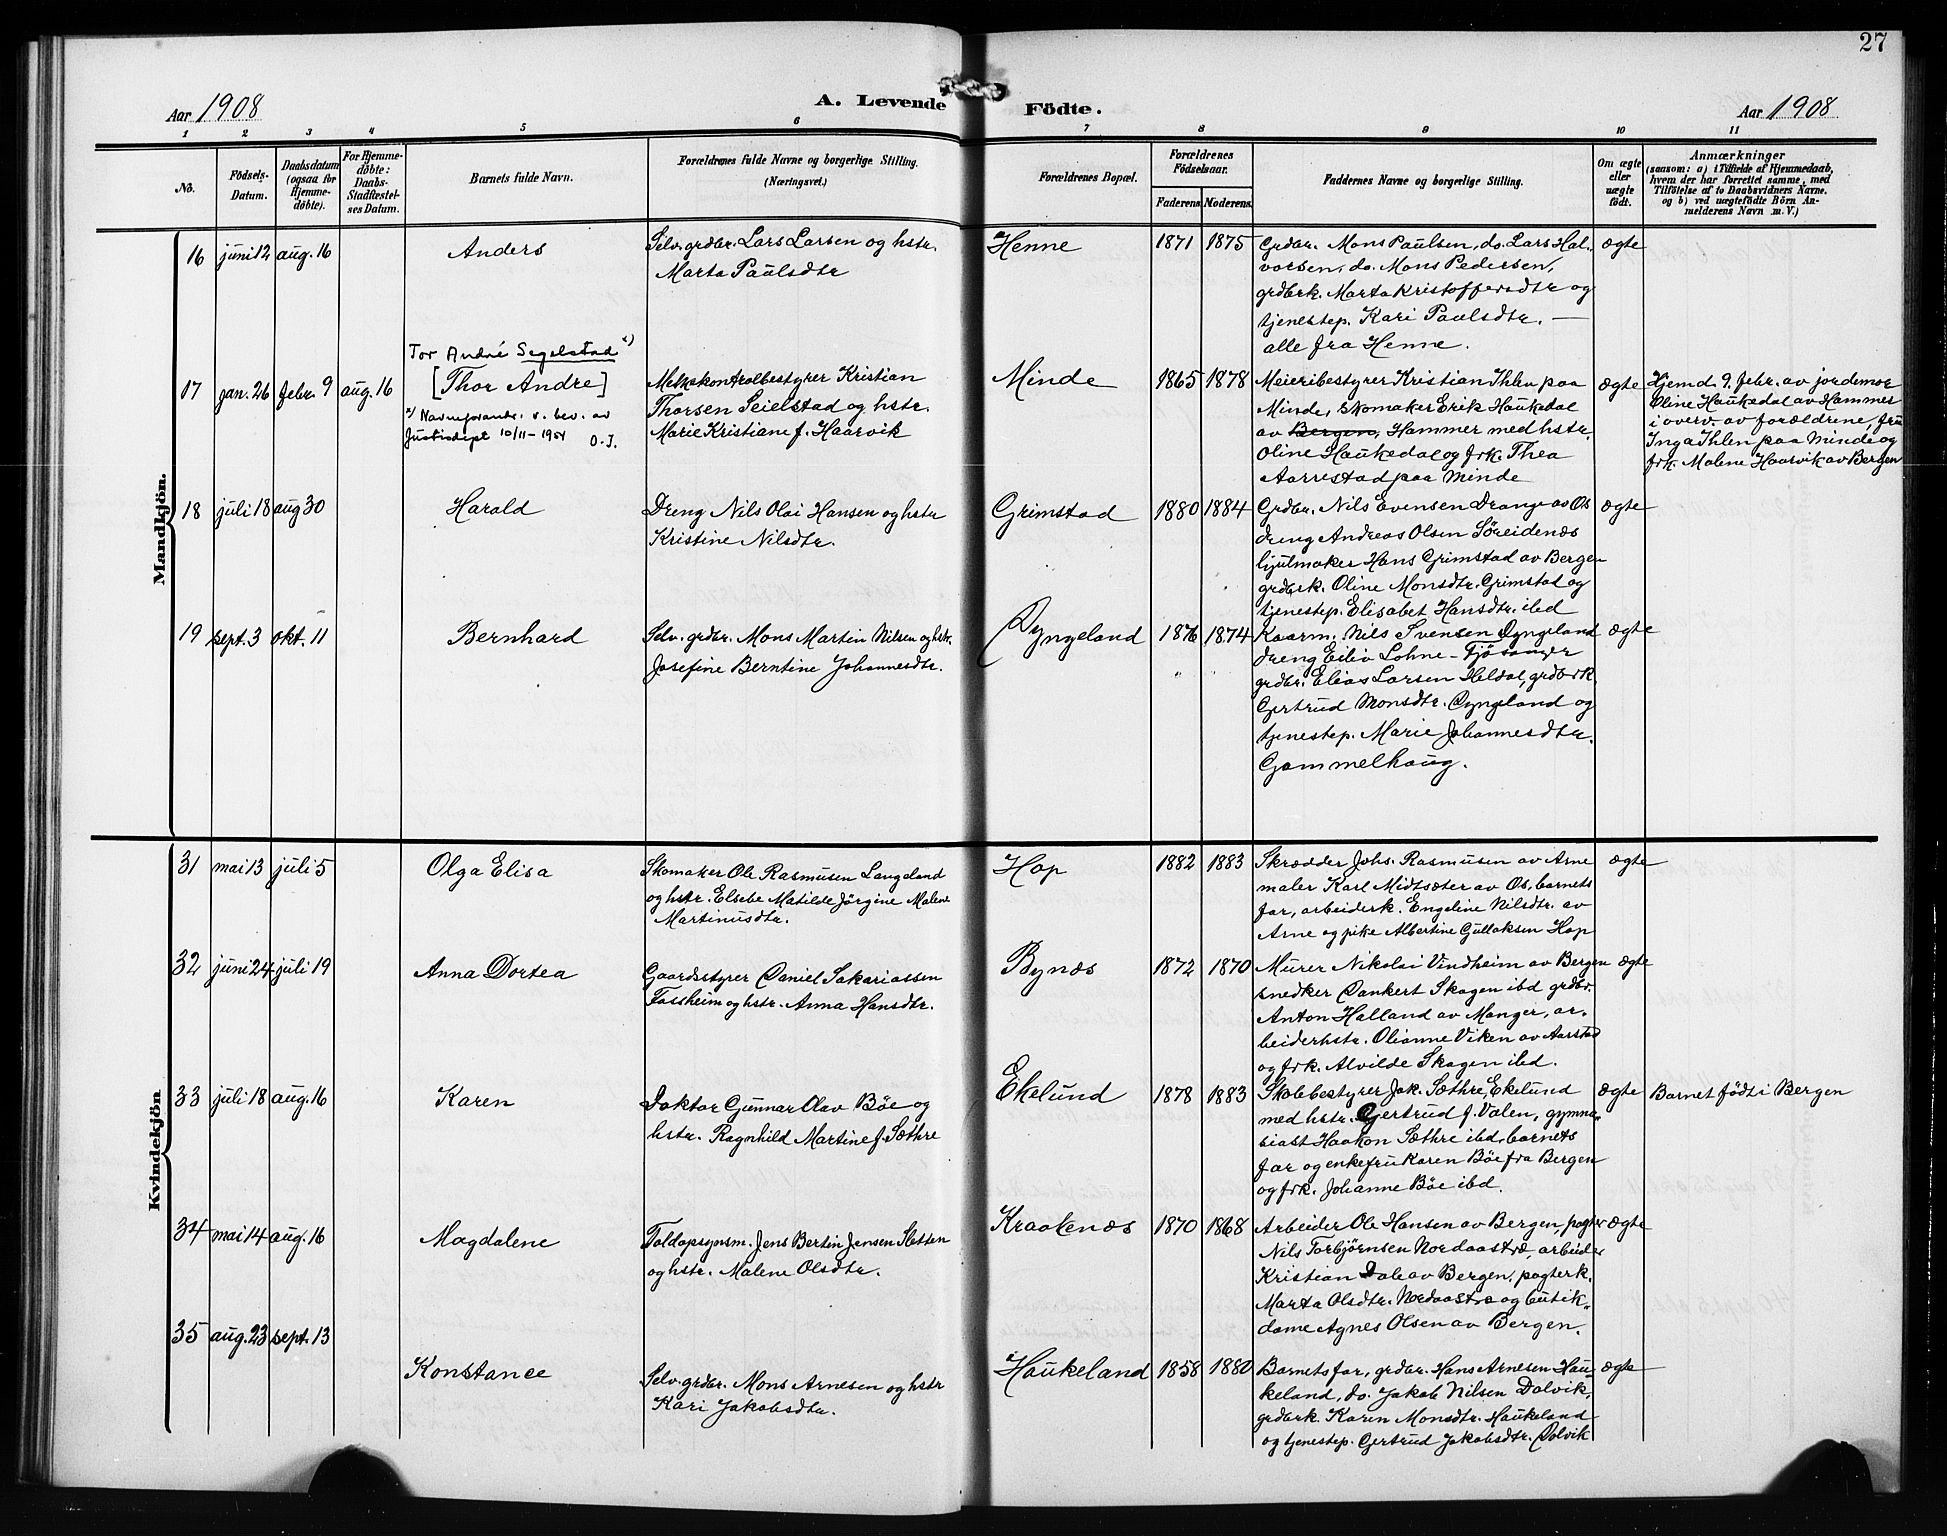 27
Aar 1908
A. Levende Födte.
Aar 1908
1 2 3 4 5 6 7 8 9 10 11
No.
Födsels-
Datum.
Daabsdatum
(ogsaa for
Hjemme-
döbte).
For Hjemme-
döbte:
Daabs-
Stadfæstel-
ses Datum.
Barnets fulde Navn.
Forældrenes fulde Navne og borgerlige Stilling.
(Næringsvei.)
Forældrenes Bopæl.
Forældrenes
Födselsaar.
Faderens. Moderens.
Faddernes Navne og borgerlige Stilling.
Om ægte
eller
uægte
födt.
Anmærkninger
(saasom: a) i Tilfælde af Hjemmedaab,
hvem der har forrettet samme, med
Tilföielse af to Daabsvidners Navne,
og b) ved uægtefödte Börn An-
melderens Navn m. V.)
Mandkjön.
16 juni 12 aug. 16
Anders
Selv. grdbr. Lars Larsen og hstr.
Marta Paulsdtr
Henne
1871 1875
Grdbr. Mons Paulsen, do. Lars Hal-
vorsen, do. Mons Pedersen,
grdbrk. Marta Kristoffersdtr og
tjenestep. Kari Paulsdtr. —
alle fra Henne.
ægte
17 jan. 26 febr. 9 aug. 16
Tor André Segelstad ¹)
[Thor Andre]
¹) Navneforandr. v. bev. av
Justisdept 10/11-1954 O.J.
Melkekontrolbestyrer Kristian
Thorsen Seielstad og hstr.
Marie Kristiane f. Haarvik
Minde
1865 1878
Meieribestyrer Kristian Ihlen paa
Minde, skomaker Erik Haukedal
av Bergen, Hammer med hstr.
Oline Haukedal og frk. Thea
Aarrestad paa Minde
ægte
Hjemd. 9. febr. av jordemor
Oline Haukedal av Hammer
i overv. av forældrene, fru
Inga Ihlen paa Minde og
frk. Malene Haarvik av Bergen
18 juli 18 aug 30
Harald
Dreng Nils Olai Hansen og hstr
Kristine Nilsdtr.
Grimstad
1880 1884
Grdbr. Nils Evensen Drange av Os
dreng Andreas Olsen Söreidenæs
hjulmaker Hans Grimstad av Bergen
grdbrk. Oline Monsdtr. Grimstad og
tjenestep. Elisabet Hansdtr. ibd
ægte
19 sept. 3 okt. 11
Bernhard
Selv. grdbr. Mons Martin Nilsen og hstr.
Josefine Berntine Johannesdtr.
Dyngeland
1876 1874
Kaarm. Nils Svensen Dyngeland
dreng Eiliv Lohne - Fjösanger
grdbr. Elias Larsen Heldal, grdbrk.
Gertrud Monsdtr. Dyngeland og
tjenestep. Marie Johannesdtr.
Gammelhaug.
ægte
Kvindekjön
31 mai 13 juli 5
Olga Elisa
Skomaker Ole Rasmusen Langeland
og hstr. Elsebe Matilde Jörgine Malene
Martinusdtr.
Hop
1882 1883
Skrædder Johs. Rasmusen av Arne
maler Karl Midtsæter av Os, barnets
far, arbeiderk. Engeline Nilsdtr. av
Arne og pike Albertine Gullaksen Hop
ægte
32 juni 24 juli 19
Anna Dortea
Gaardsstyrer Daniel Sakariassen
Fossheim og hstr. Anna Hansdtr.
Bynæs
1872 1870
Murer Nikolai Vindheim av Bergen
snedker Dankert Skagen ibd grdbr.
Anton Halland av Manger, ar-
beiderhstr. Olianne Viken av Aarstad
og frk. Alvilde Skagen ibd.
ægte
33 juli 18 aug. 16
Karen
Doktor Gunnar Olav Böe og
hstr. Ragnhild Martine f. Sæthre
Ekelund
1878 1883
Skolebestyrer Jak. Sæthre, Ekelund
med hstr. Gjertrud f. Valen, gymna-
siast Haakon Sæthre ibd, barnets
far og enkefru Karen Böe fra Bergen
og frk. Johanne Böe ibd.
ægte
Barnet födt i Bergen
34 mai 14 aug. 16
Magdalene
Toldopsynsm. Jens Bertin Jensen Sletten
og hstr. Malene Olsdtr.
Kraakenæs
1870 1868
Arbeider Ole Hansen av Bergen, pagter
Nils Torbjörnsen Nordaastræ, arbeider
Kristian Dale av Bergen, pagterk.
Marta Olsdtr. Nordaastræ og butik-
dame Agnes Olsen av Bergen.
ægte
35 aug. 23 sept. 13
Konstance
Selv. grdbr. Mons Arnesen og hstr
Kari Jakobsdtr.
Haukeland
1858 1880
Barnets far, grdbr. Hans Arnesen Hau-
keland, do. Jakob Nilsen Dolvik,
grdbrk. Karen Monsdtr. Haukeland
og tjenestep. Gertrud Jakobsdtr. Dolvik
ægte